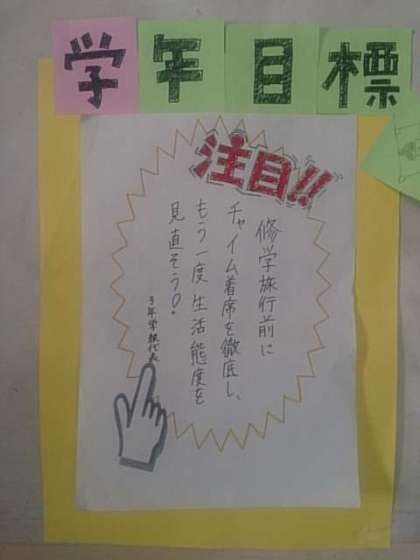 学年目標
注目!!
修学旅行前に
チャイム着席を徹底し、
もう一度生活態度を
見直そう!
3年学級代表